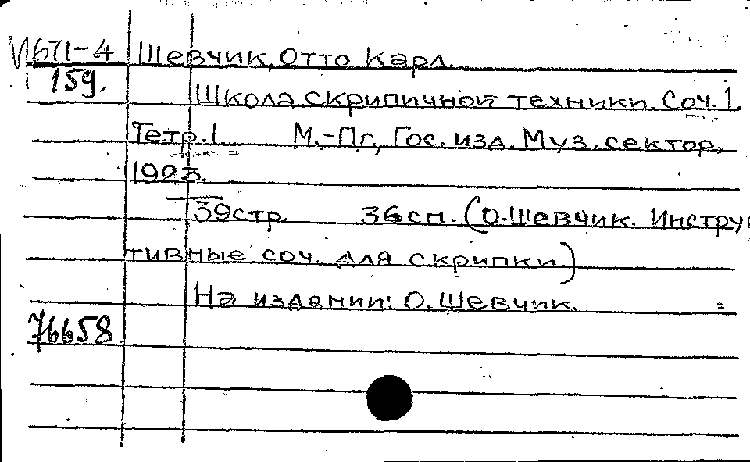 И671-4 Шевчик, Отто Карл.
159.
Школа скрипичной техники. Соч. 1.
Тетр. 1 М.-Пг, Гос. изд. Муз. сектор,
39стр. 36см. (О. Шевчик. Инструк
тивные соч. для скрипки)
На издании: О. Шевчик.
76658